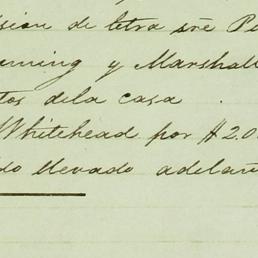 sion de letra sñe Pe
ming y Marshall
tos dela casa .
Whitehead por $2.0
do llevado adelan